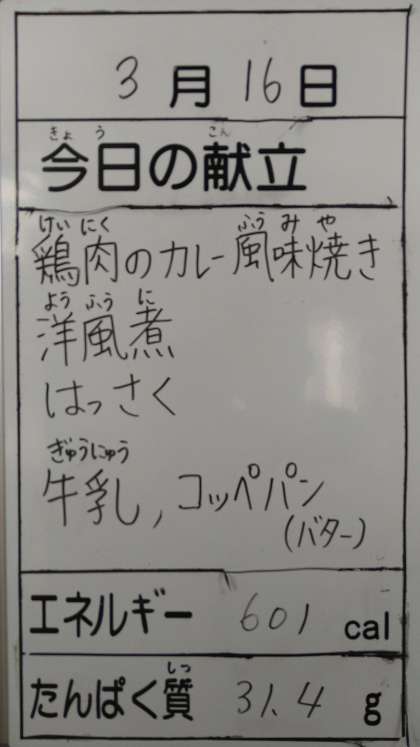 3月16日
きょう こん
今日の献立
けいにく ふうみや
鶏肉のカレー風味焼き
ようふうに
洋風煮
はっさく
ぎゅうにゅう
牛乳, コッペパン
(バター)
エネルギー 601 cal
しつ
たんぱく質 31.4 g